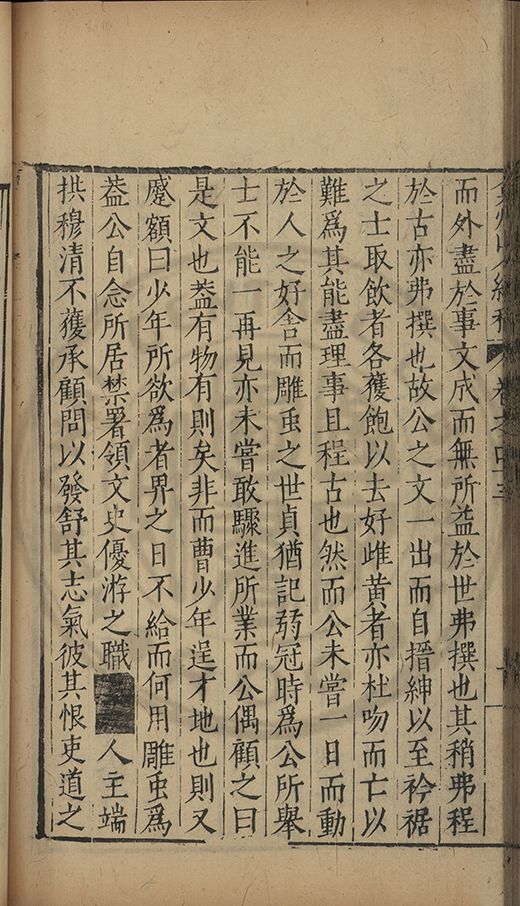 弇州山人續稿 卷之四十三
而外盡於事文成而無所益於世弗撰也其稍弗程
於古亦弗撰也故公之文一出而自搢紳以至衿裾
之士取飲者各獲飽以去好雌黄者亦杜吻而亡以
難爲其能盡理事且程古也然而公未嘗一日而動
於人之好舎而雕䖝之世貞猶記弱冠時爲公所舉
士不能一再見亦未嘗敢驟進所業而公偶顧之曰
是文也葢有物有則矣非而曹少年逞才地也則又
蹙額曰少年所欲爲者畀之日不給而何用雕䖝爲
葢公自念所居禁署領文史優游之職人主端
拱穆清不獲承顧問以發舒其志氣彼其恨吏道之